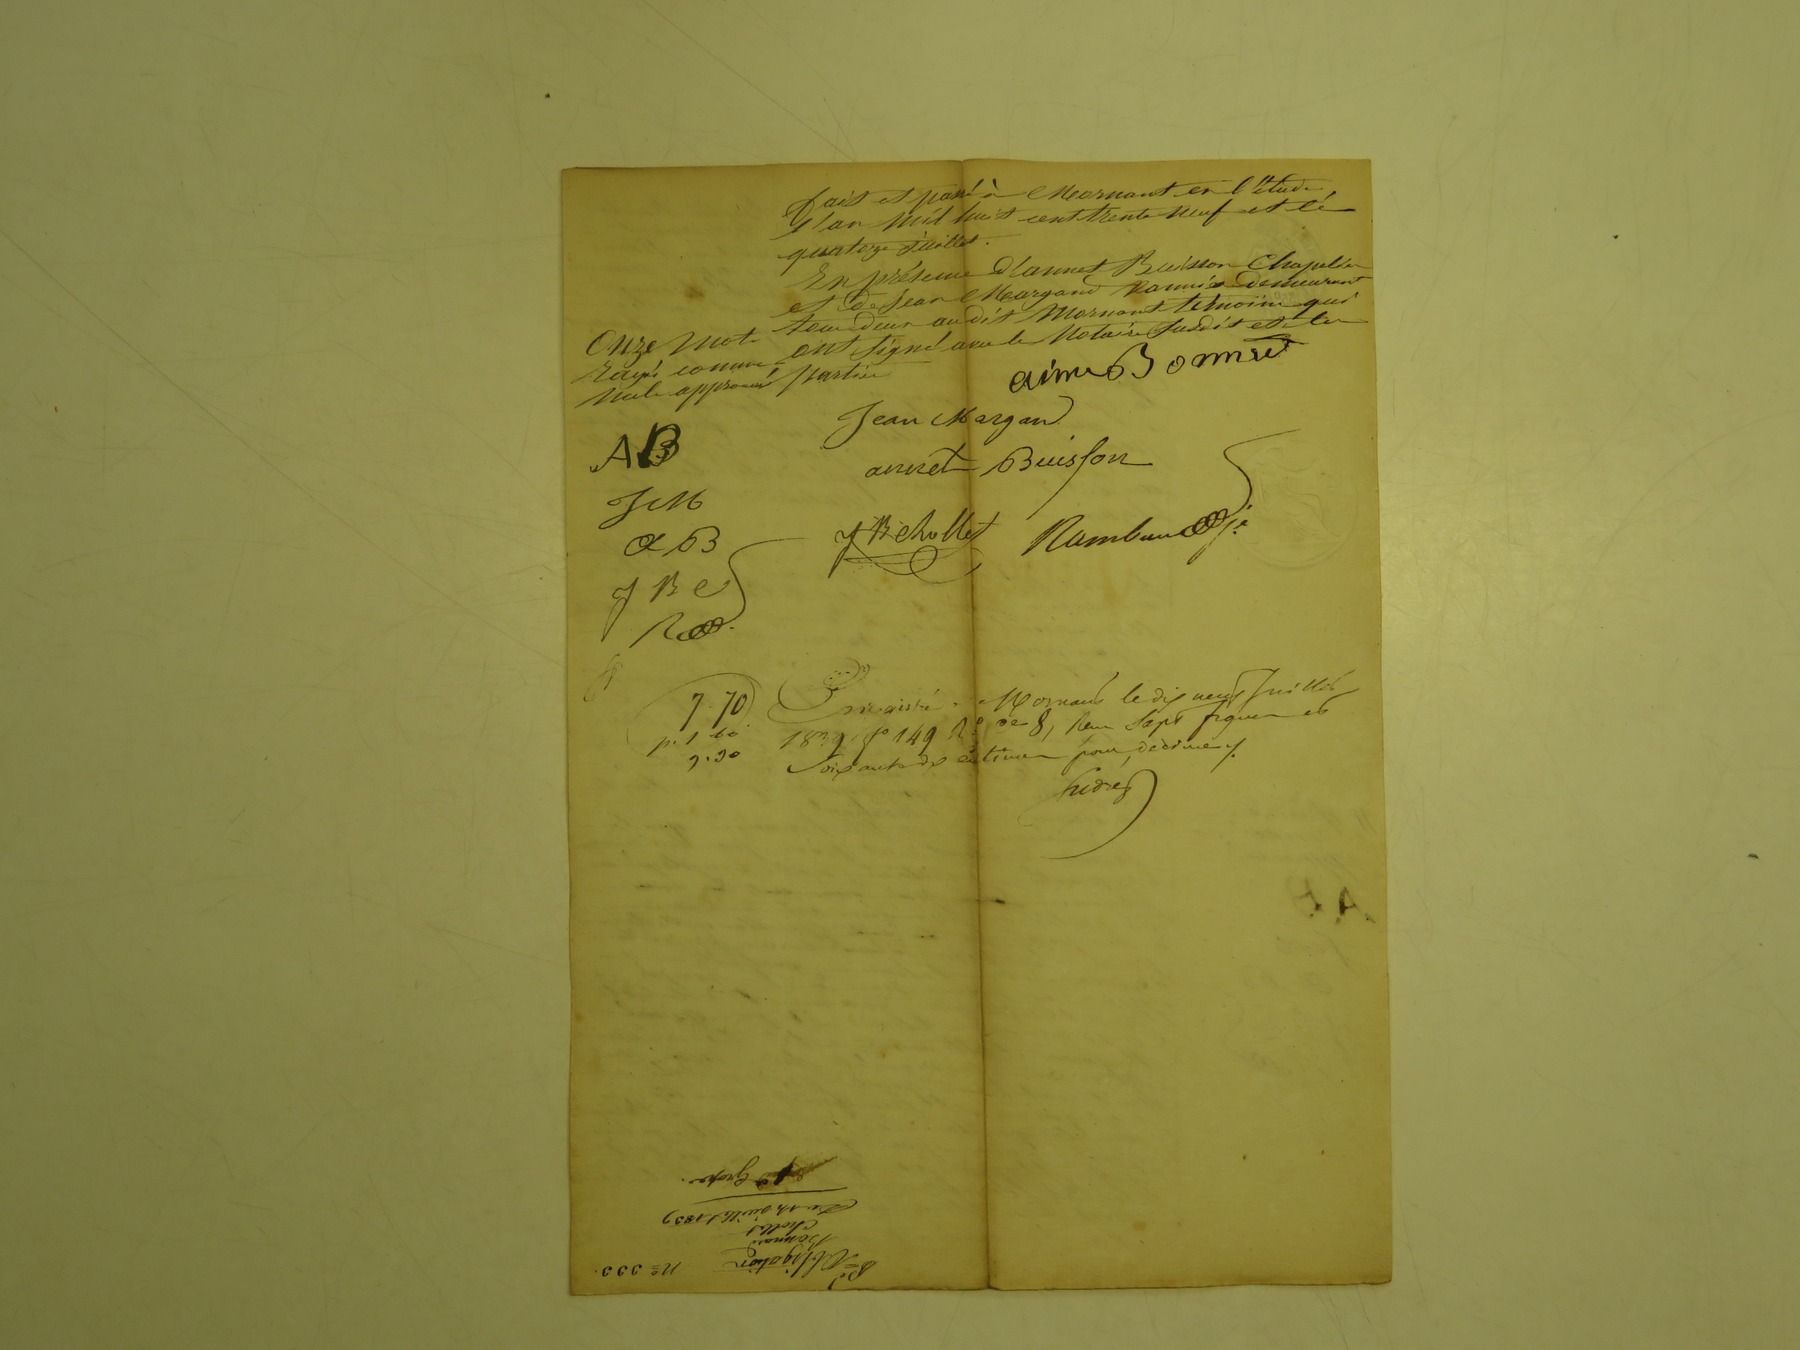 fait et passé à Mornant en l'étude
l'an mil huit cent trente neuf et le
quatorze Juillet.
En présence d'annet Buisson Chapelier
et de Jean Margand demeurant
tous deux au dit Mornant témoins qui
ont signé avec le Notaire susdit et les
parties
Onze mots
rayés comme
nuls approuvé
aime Bonnard
Jean Margand
annet Buisson
JB Chollet Rambaud Je
AB
JM
a B
J B C
R
7.70
Enregistré à Mornant le dix neuf Juillet
1839 fo 149 Ro Ce 8, Reçu sept francs et
Soixante dix centimes pour décime
No 333.
Obligation
Bonnard
Chollet
Du 14 Juillet 1839
Grosse.